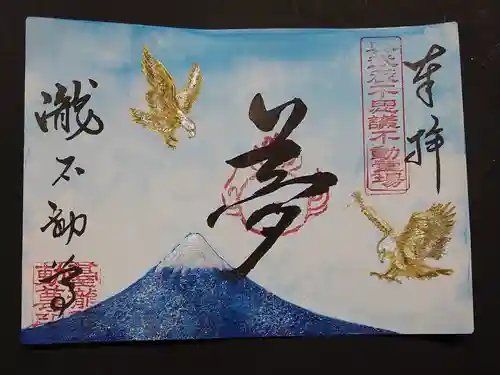 奉拝
北武蔵不思議不動霊場
夢
瀧不動尊